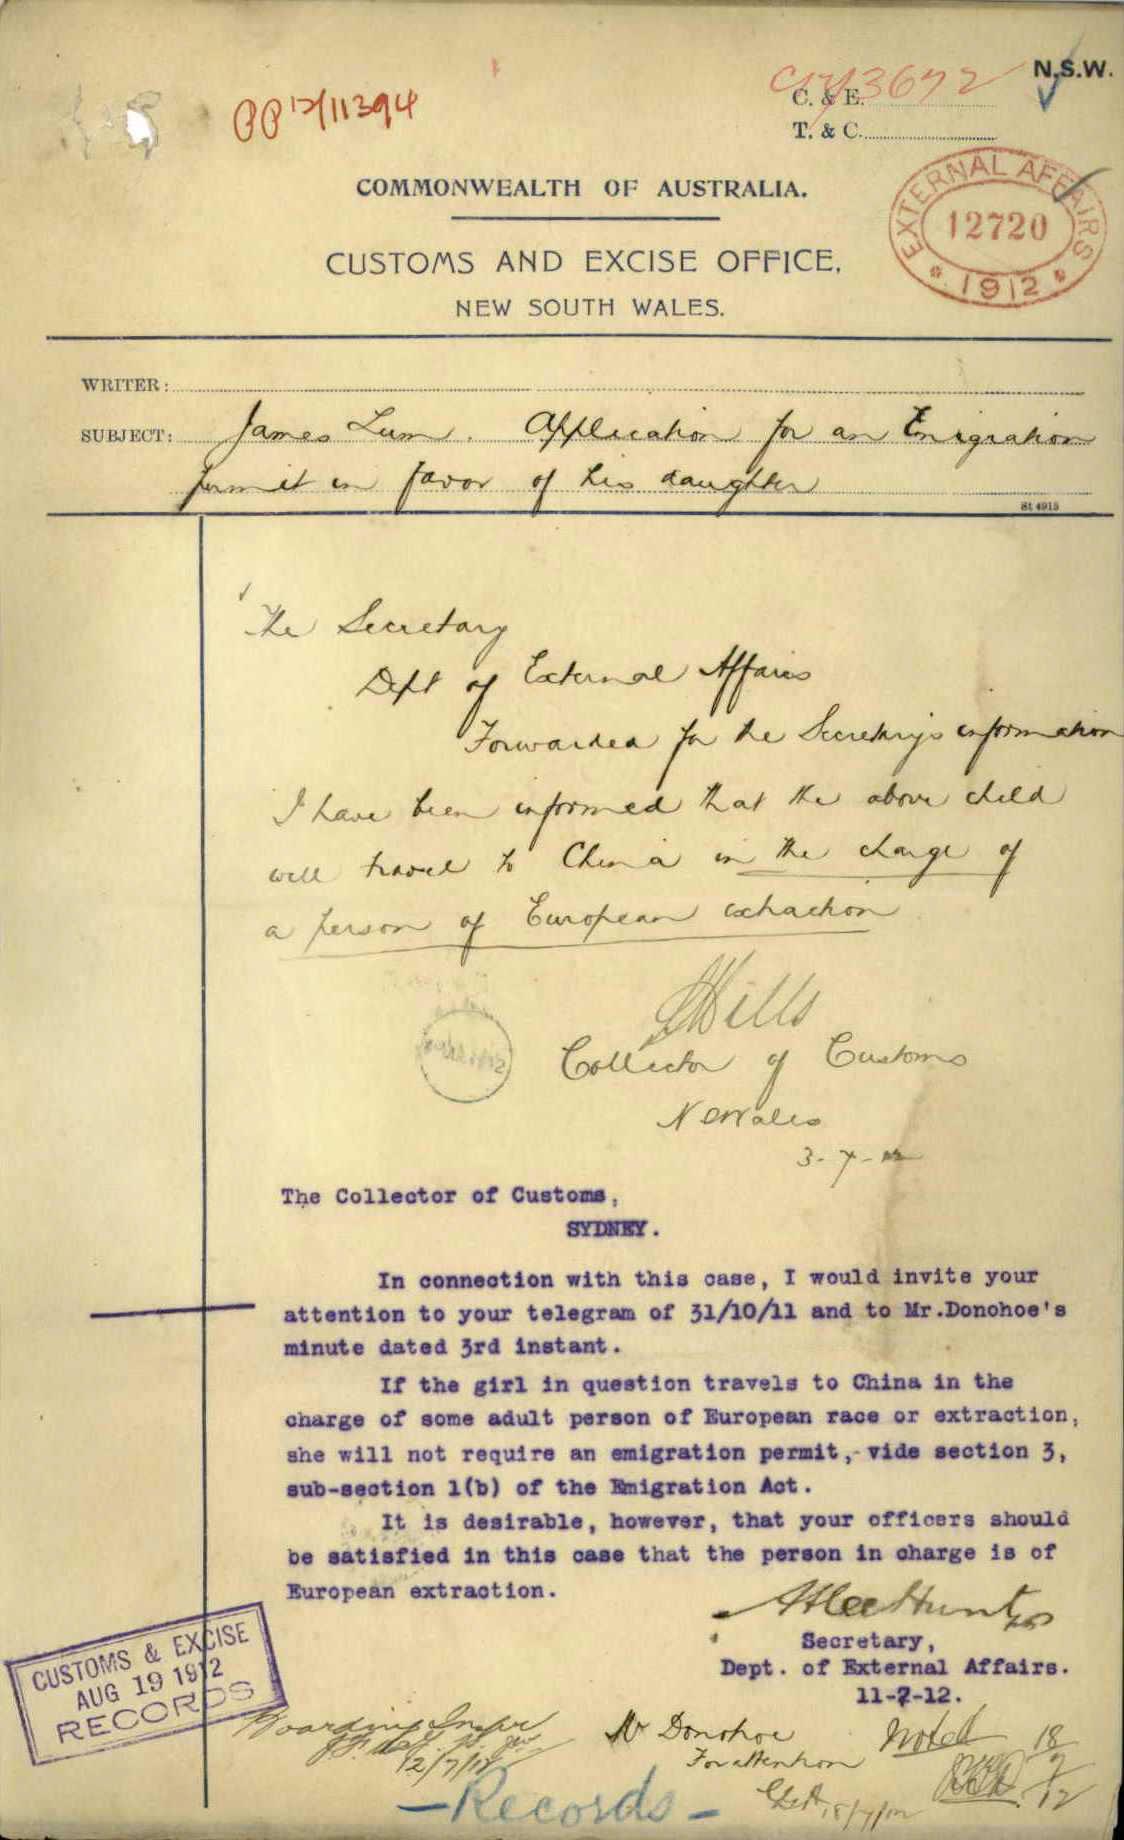 N.S.W.
PP 12/11394
C12/3672
C. & E.
T. & C.
EXTERNAL AFFAIRS
12720
1912
COMMONWEALTH OF AUSTRALIA.
CUSTOMS AND EXCISE OFFICE,
NEW SOUTH WALES.
WRITER:
SUBJECT: James Lum. Application for an Emigration
permit in favor of his daughter
St 4915
The Secretary
Dept of External Affairs
Forwarded for the Secretary's information
I have been informed that the above child
will travel to China in the charge of
a person of European extraction
Mills
Collector of Customs
N S Wales
3-7-12
The Collector of Customs,
SYDNEY.
In connection with this case, I would invite your
attention to your telegram of 31/10/11 and to Mr.Donohoe's
minute dated 3rd instant.
If the girl in question travels to China in the
charge of some adult person of European race or extraction,
she will not require an emigration permit,- vide section 3,
sub-section 1(b) of the Emigration Act.
It is desirable, however, that your officers should
be satisfied in this case that the person in charge is of
European extraction.
Atlee Hunt
Secretary,
Dept. of External Affairs.
11-7-12.
CUSTOMS & EXCISE
AUG 19 1912
RECORDS
Boarding Inspr
12/7/12
Mr Donohoe
For attention
18/7/12
Noted
18/7/12
- Records -